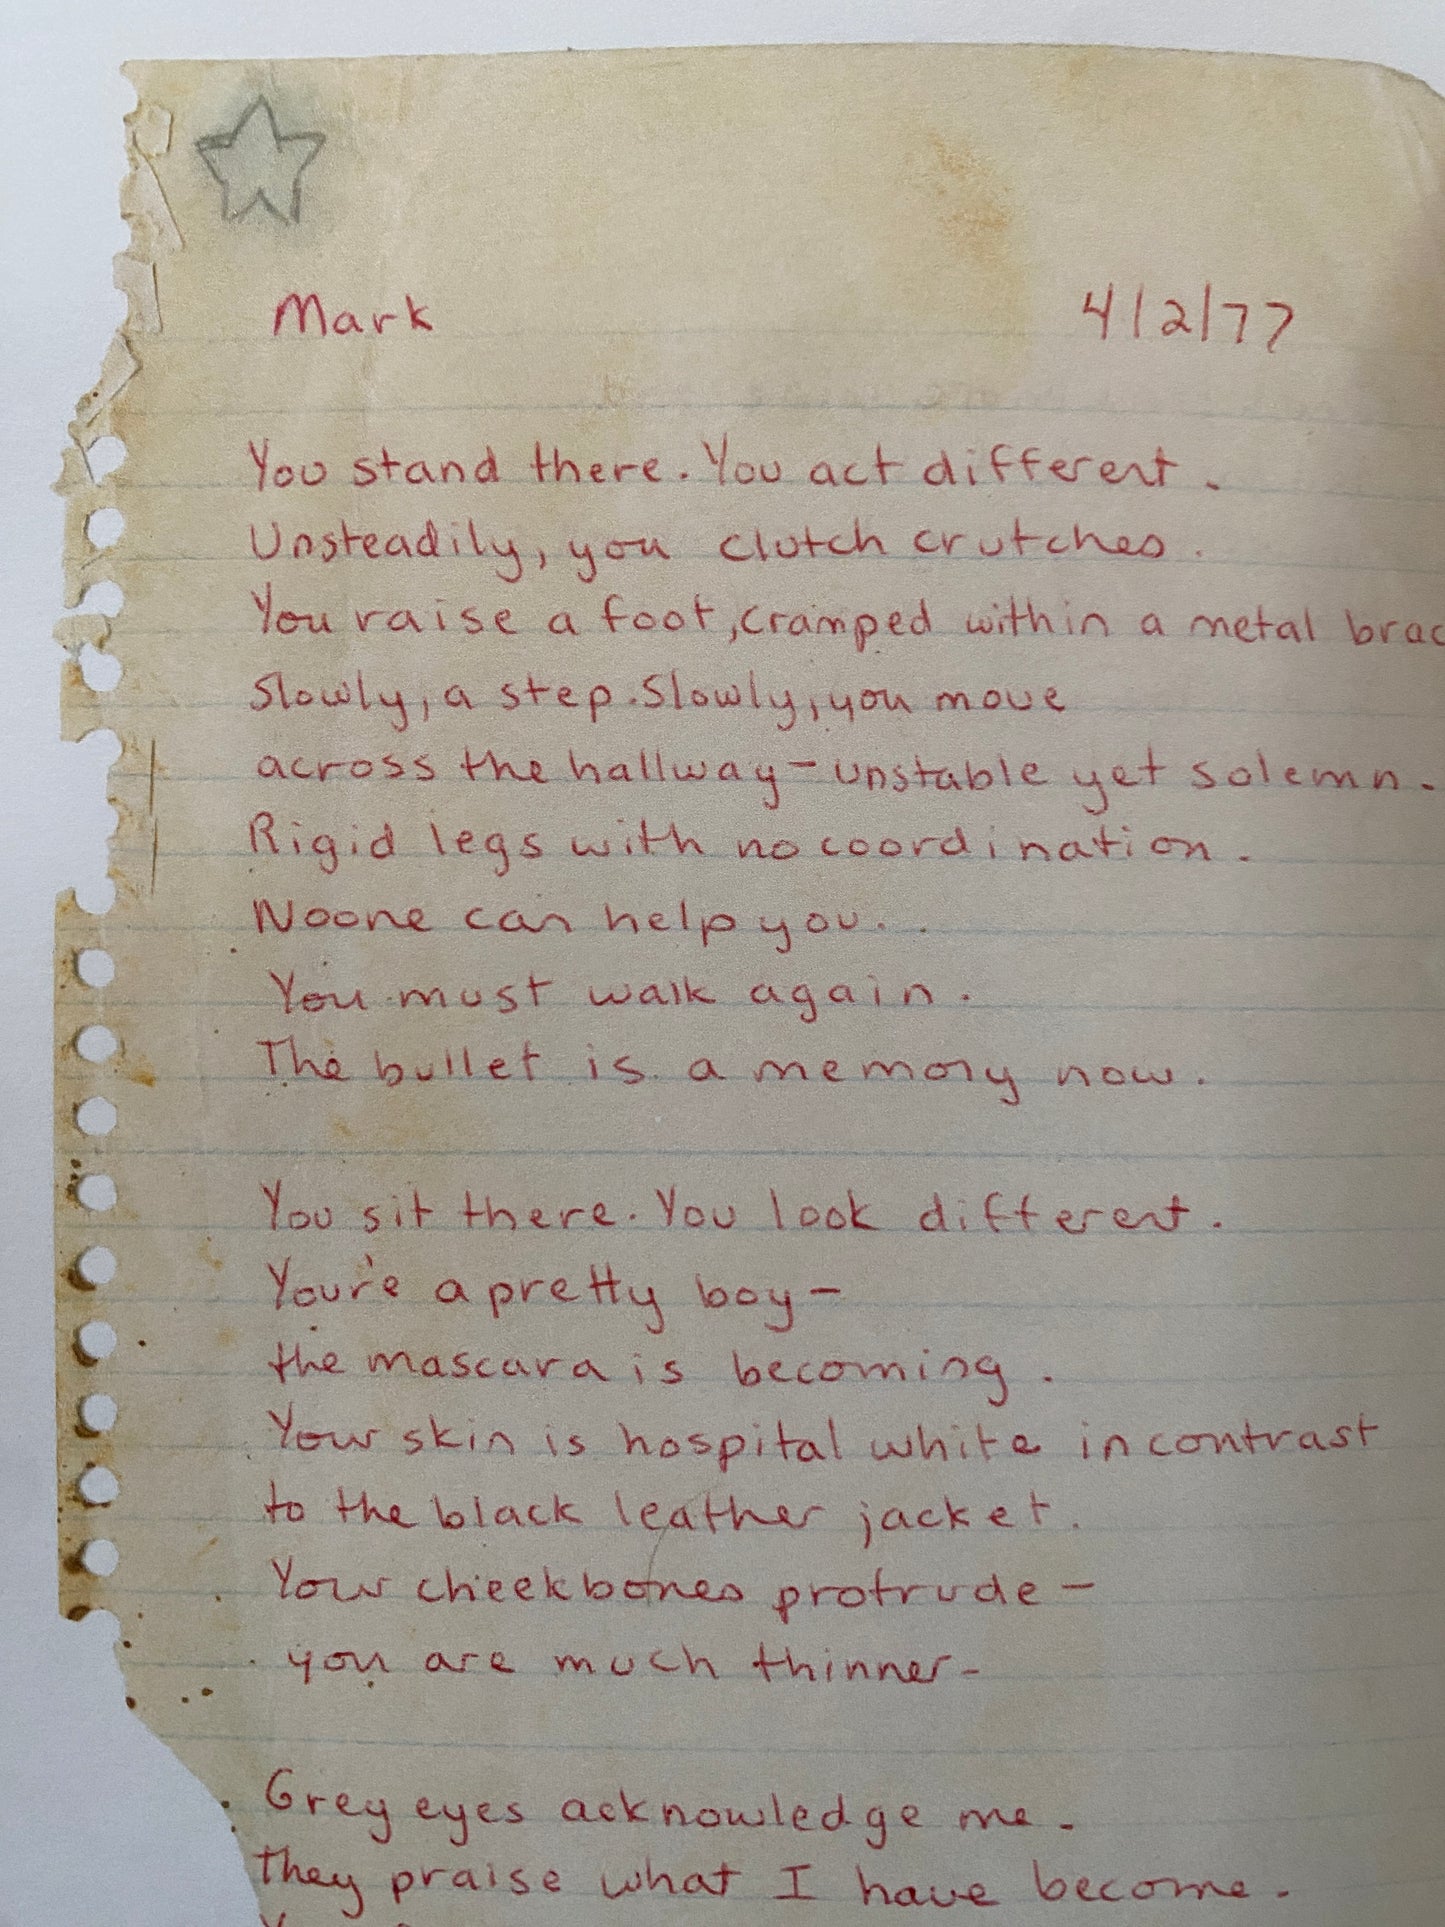 Mark 4/2/77
You stand there. You act different.
Unsteadily, you clutch crutches.
You raise a foot, cramped within a metal brac
Slowly, a step. Slowly, you move
across the hallway - unstable yet solemn.
Rigid legs with no coordination.
Noone can help you.
You must walk again.
The bullet is a memory now.
You sit there. You look different.
Your'e a pretty boy -
the mascara is becoming.
Your skin is hospital white in contrast
to the black leather jacket.
Your cheekbones protrude -
you are much thinner -
Grey eyes acknowledge me.
They praise what I have become.